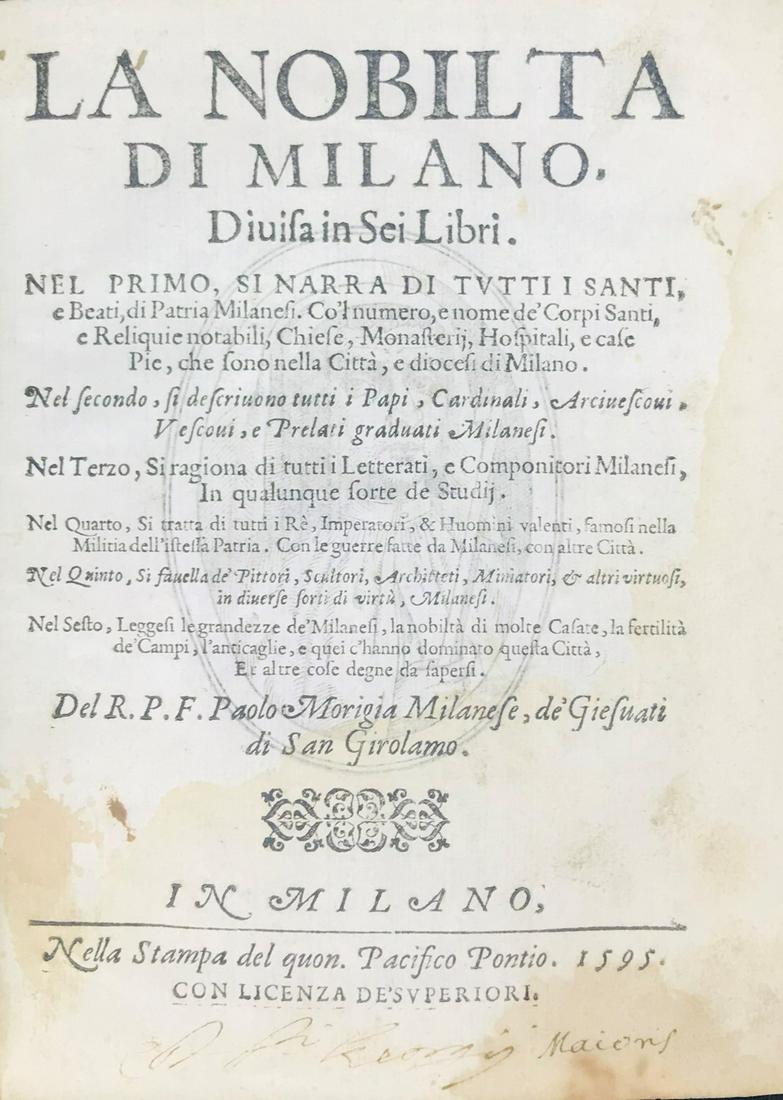 LA NOBILTA
DI MILANO.
Diuiſa in Sei Libri.
NEL PRIMO, SI NARRA DI TVTTI I SANTI,
e Beati, di Patria Milaneſi. Co'l numero, e nome de' Corpi Santi,
e Reliquie notabili, Chieſe, Monaſterij, Hoſpitali, e caſe
Pie, che ſono nella Città, e dioceſi di Milano.
Nel ſecondo, ſi deſcriuono tutti i Papi, Cardinali, Arciueſcoui,
Veſcoui, e Prelati graduati Milaneſi.
Nel Terzo, Si ragiona di tutti i Letterati, e Componitori Milaneſi,
In qualunque ſorte de Studij.
Nel Quarto, Si tratta di tutti i Rè, Imperatori, & Huomini valenti, famoſi nella
Militia dell'iſteſſa Patria. Con le guerre fatte da Milaneſi, con altre Città.
Nel Quinto, Si fauella de' Pittori, Scultori, Architteti, Miniatori, & altri virtuoſi,
in diuerſe ſorti di virtù, Milaneſi.
Nel Seſto, Leggeſi le grandezze de' Milaneſi, la nobiltà di molte Caſate, la fertilità
de' Campi, l'anticaglie, e quei c'hanno dominato queſta Città,
Et altre coſe degne da ſaperſi.
Del R. P. F. Paolo Morigia Milaneſe, de' Gieſuati
di San Girolamo.
IN MILANO,
Nella Stampa del quon. Pacifico Pontio. 1595.
CON LICENZA DE' SVPERIORI.